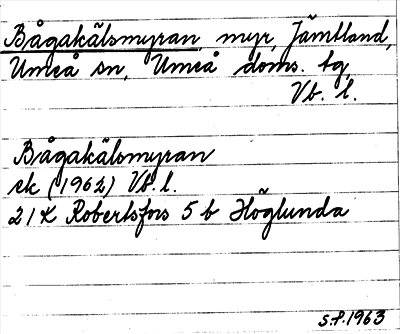 Bågakälsmyran, myr, Jämtland,
Umeå sn, Umeå doms. tg
Vb. l.
Bågakälsmyran
ek (1962) Vb. l.
21K Robertsfors 5 b Höglunda
S.P. 1963